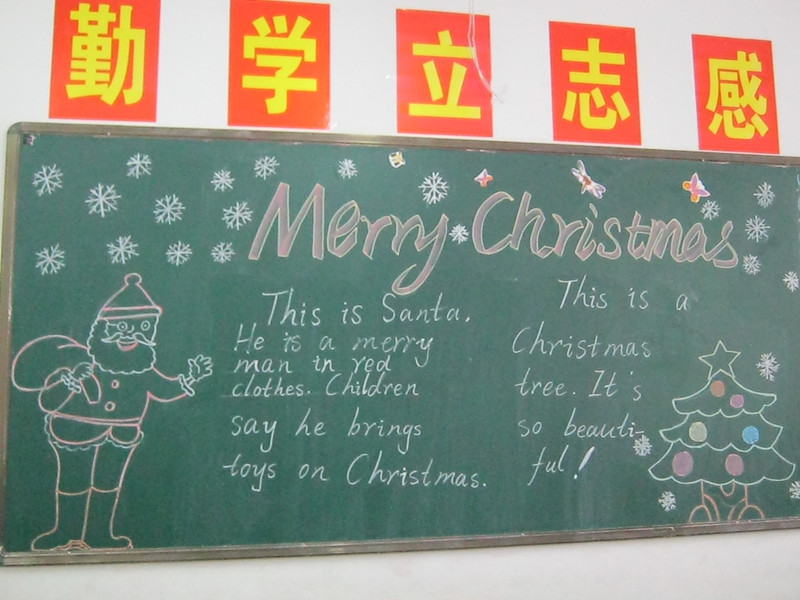 勤学立志感
Merry Christmas
This is Santa.
He is a merry
man in red
clothes. Children
say he brings
toys on Christmas.
This is a
Christmas
tree. It's
so beauti-
ful!